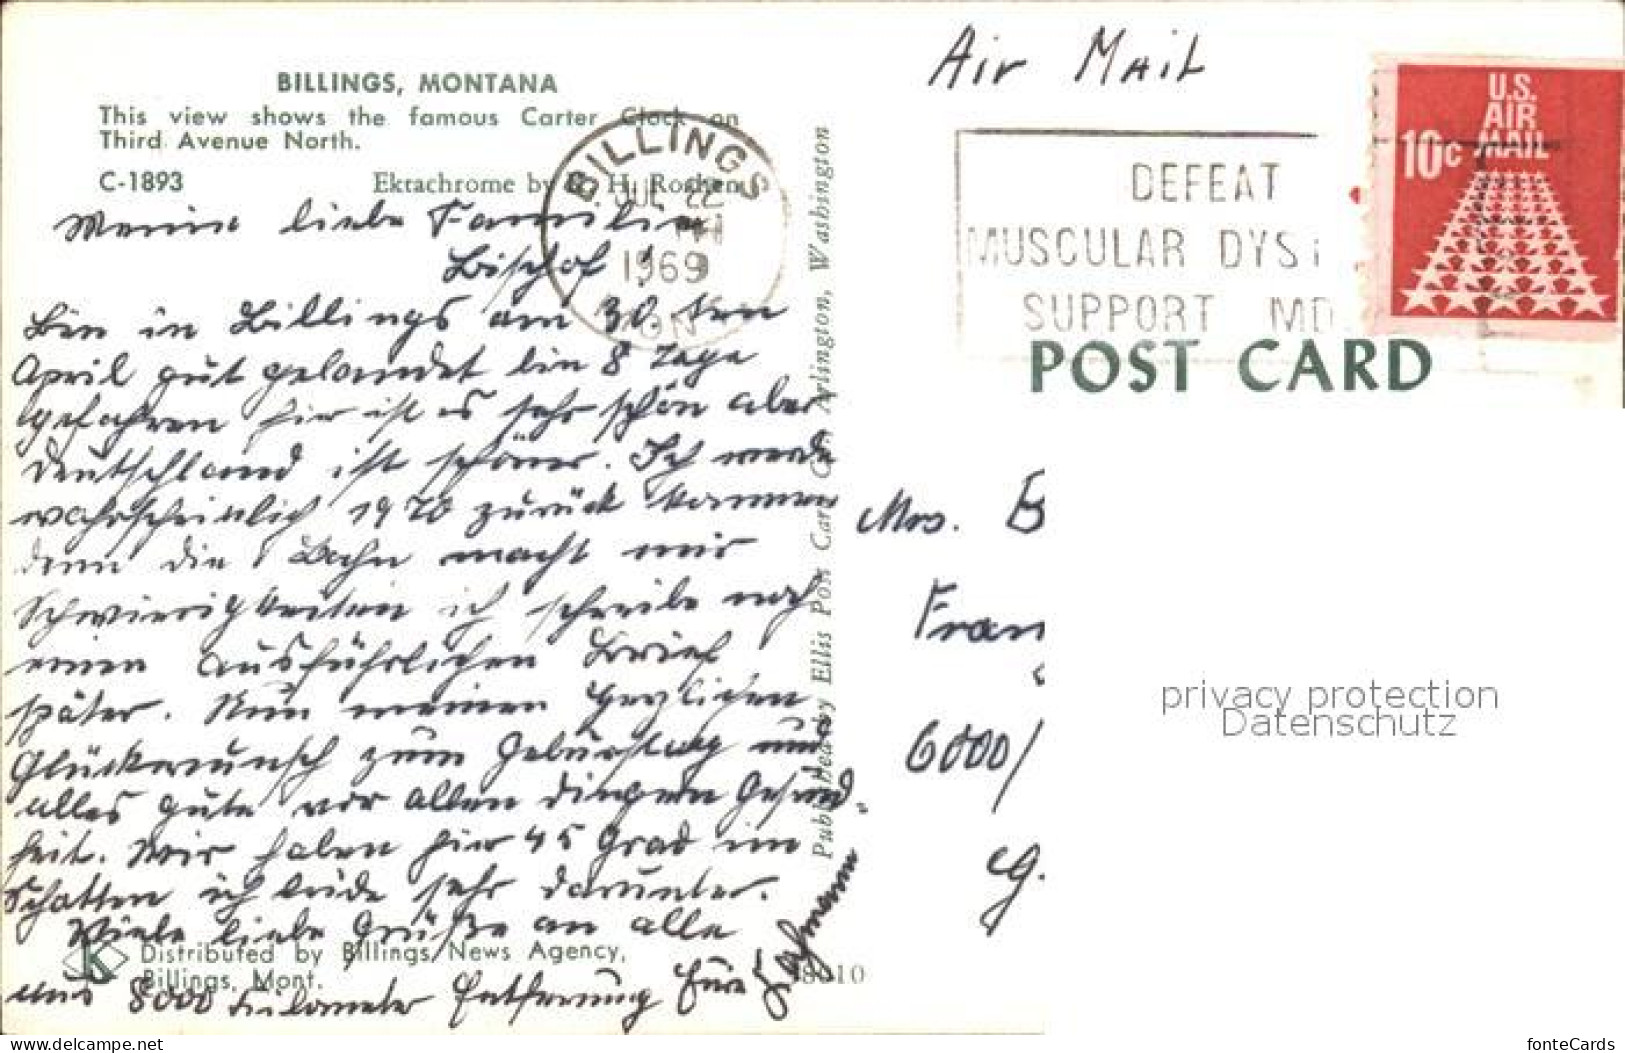 BILLINGS, MONTANA
This view shows the famous Carter Clock on
Third Avenue North.
C-1893 Ektachrome by H. Rocken
Meine liebe Familie
Bischof!
Bin in Billings am 30. ten
April gut gelandet bin 8 Tage
gefahren hir ist es sehr schön aber
Deutschland ist schöner. Ich werde
wahrscheinlich 1970 zurück kommen
denn die Bahn macht mir
Schwierigkeiten ich schreibe noch
einen ausführlichen Brief
später. Nun meinen herzlichen
Glückwunsch zum Geburtstag und
alles gute vor allen dingen Gesund-
heit. Wir haben hier 45 Grad im
Schatten ich leide sehr darunter.
Viele liebe Grüße an alle
aus 8000 Kilometer Entfernung Eure
Distributed by Billings News Agency,
Billings, Mont.
K
BILLINGS
JUL 22
1969
Publ. by Ellis Post Card Co., Arlington, Washington
Air Mail
DEFEAT
MUSCULAR DYST
SUPPORT MD
U.S.
AIR
MAIL
10c
POST CARD
Mrs. B
Fran
6000/
G.
privacy protection
Datenschutz
www.delcampe.net
fonteCards